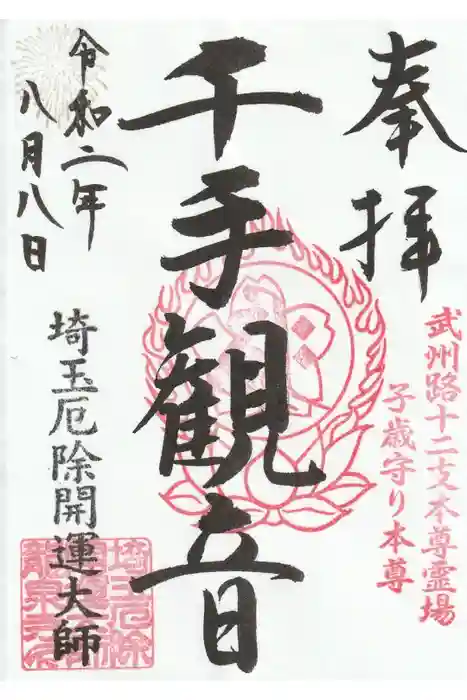 奉拝
武州路十二支本尊霊場
子歳守り本尊
千手観音
令和二年
八月八日
埼玉厄除開運大師